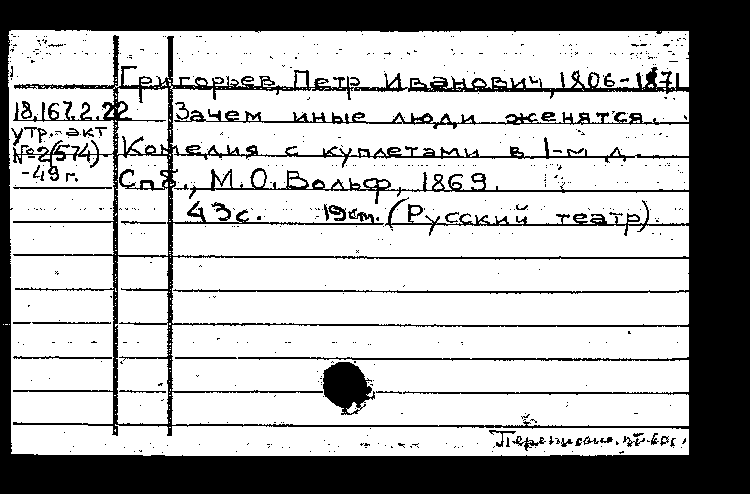 Григорьев, Петр Иванович, 1806-1871
18.167.2.22 Зачем иные люди женятся.
утр. - акт
№2(574) Комедия с куплетами в 1-м д.
-49 г. Спб., М.О. Вольф, 1869.
43с. 19см. (Русский театр).
Переписано.